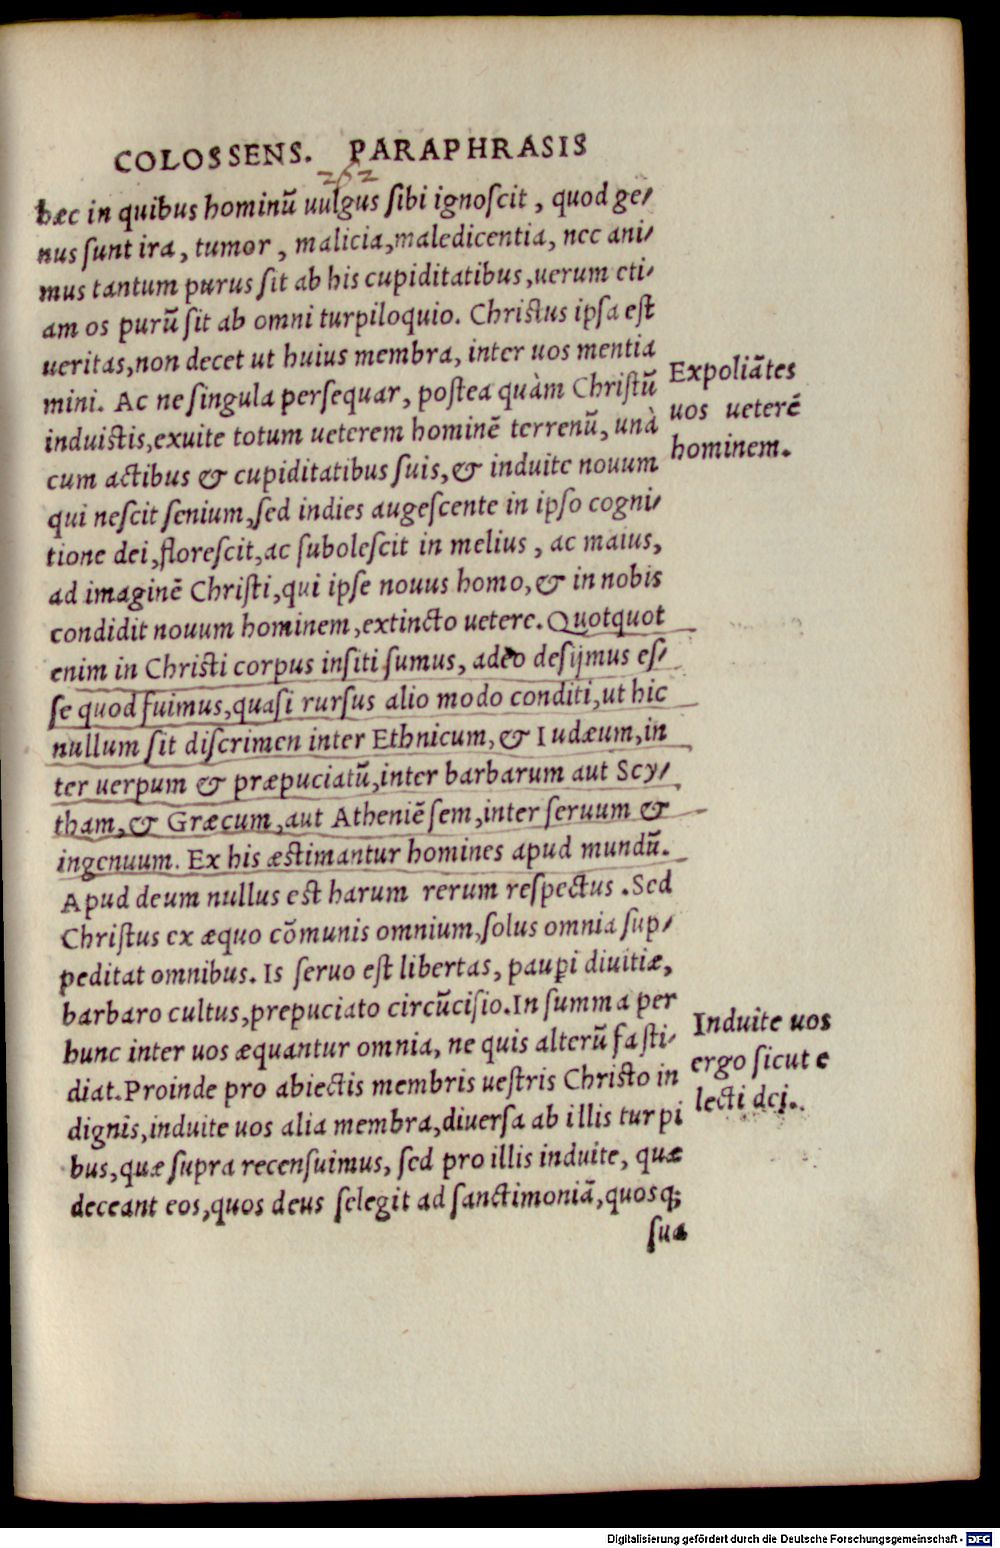 COLOSSENS. PARAPHRASIS
262
hæc in quibus hominũ uulgus ſibi ignoſcit, quod ge⸗
nus ſunt ira, tumor, malicia, maledicentia, nec ani⸗
mus tantum purus ſit ab his cupiditatibus, uerum eti⸗
am os purũ ſit ab omni turpiloquio. Chriſtus ipſa eſt
ueritas, non decet ut huius membra, inter uos mentia
mini. Ac ne ſingula perſequar, poſtea quàm Chriſtũ
induiſtis, exuite totum ueterem hominẽ terrenũ, unà
cum actibus & cupiditatibus ſuis, & induite nouum
qui neſcit ſenium, ſed indies augeſcente in ipſo cogni⸗
tione dei, floreſcit, ac ſuboleſcit in melius, ac maius,
ad imaginẽ Chriſti, qui ipſe nouus homo, & in nobis
condidit nouum hominem, extincto uetere. Quotquot
enim in Chriſti corpus inſiti ſumus, adeo deſijmus eſ⸗
ſe quod fuimus, quaſi rurſus alio modo conditi, ut hic
nullum ſit diſcrimen inter Ethnicum, & Iudæum, in
ter uerpum & præpuciatũ, inter barbarum aut Scy⸗
tham, & Græcum, aut Atheniẽſem, inter ſeruum &
ingenuum. Ex his æſtimantur homines apud mundũ.
Apud deum nullus eſt harum rerum reſpectus. Sed
Chriſtus ex æquo cõmunis omnium, ſolus omnia ſup⸗
peditat omnibus. Is ſeruo eſt libertas, paup̱i diuitiæ,
barbaro cultus, prepuciato circũciſio. In ſumma per
hunc inter uos æquantur omnia, ne quis alterũ faſti⸗
diat. Proinde pro abiectis membris ueſtris Chriſto in
dignis, induite uos alia membra, diuerſa ab illis turpi
bus, quæ ſupra recenſuimus, ſed pro illis induite, quæ
deceant eos, quos deus ſelegit ad ſanctimoniã, quosq;
ſua
Expoliãtes
uos ueterẽ
hominem.
Induite uos
ergo ſicut e
lecti dei.
Digitalisierung gefördert durch die Deutsche Forschungsgemeinschaft - DFG